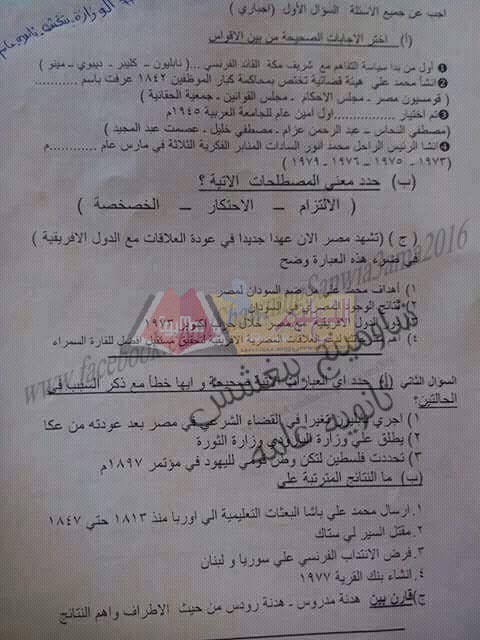 اجب عن جميع الاسئلة السؤال الأول (اجباري)
(أ) اختر الاجابات الصحيحة من بين الاقواس
❶ أول من بدا سياسة التفاهم مع شريف مكة القائد الفرنسي ... (نابليون - كليبر - ديبوي - مينو)
❷ انشأ محمد علي هيئة قضائية تختص بمحاكمة كبار الموظفين ١٨٤٢ عرفت باسم ..........
(قومسيون مصر - مجلس الاحكام - مجلس القوانين - جمعية الحقانية)
❸ تم اختيار ................اول امين عام للجامعة العربية ١٩٤٥م
(مصطفي النحاس - عبد الرحمن عزام - مصطفي خليل - عصمت عبد المجيد)
❹ انشا الرئيس الراحل محمد انور السادات المنابر الفكرية الثلاثة في مارس عام ............ م
(١٩٧٣ - ١٩٧٥ - ١٩٧٦ - ١٩٧٩)
(ب) حدد معني المصطلحات الاتية ؟
( الالتزام - الاحتكار - الخصخصة )
( ج ) (تشهد مصر الان عهدا جديدا في عودة العلاقات مع الدول الافريقية )
في ضوء هذه العبارة وضح
١) أهداف محمد علي من ضم السودان لمصر
٢) نتائج الوجود المصري في السودان
الدول الافريقية مع مصر خلال حرب اكتوبر ١٩٧٣
٤) العلاقات المصرية الافريقية لتحقق مستقبل افضل للقارة السمراء
السؤال الثاني (أ) حدد اي العبارات صحيحة و ايها خطأ مع ذكر السبب في
الحالتين؟
١) اجري تغيرا في القضاء الشرعي في مصر بعد عودته من عكا
٢) يطلق علي وزارة وزارة الثورة
٣) تحددت فلسطين لتكن وطن قومي لليهود في مؤتمر ١٨٩٧م
(ب) ما النتائج المترتبة علي
١. ارسال محمد علي باشا البعثات التعليمية الي اوربا منذ ١٨١٣ حتي ١٨٤٧
٢. مقتل السير لي ستاك
٣. فرض الانتداب الفرنسي علي سوريا و لبنان
٤. انشاء بنك القرية ١٩٧٧
ج) قارن بين هدنة مدروس - هدنة رودس من حيث الاطراف واهم النتائج